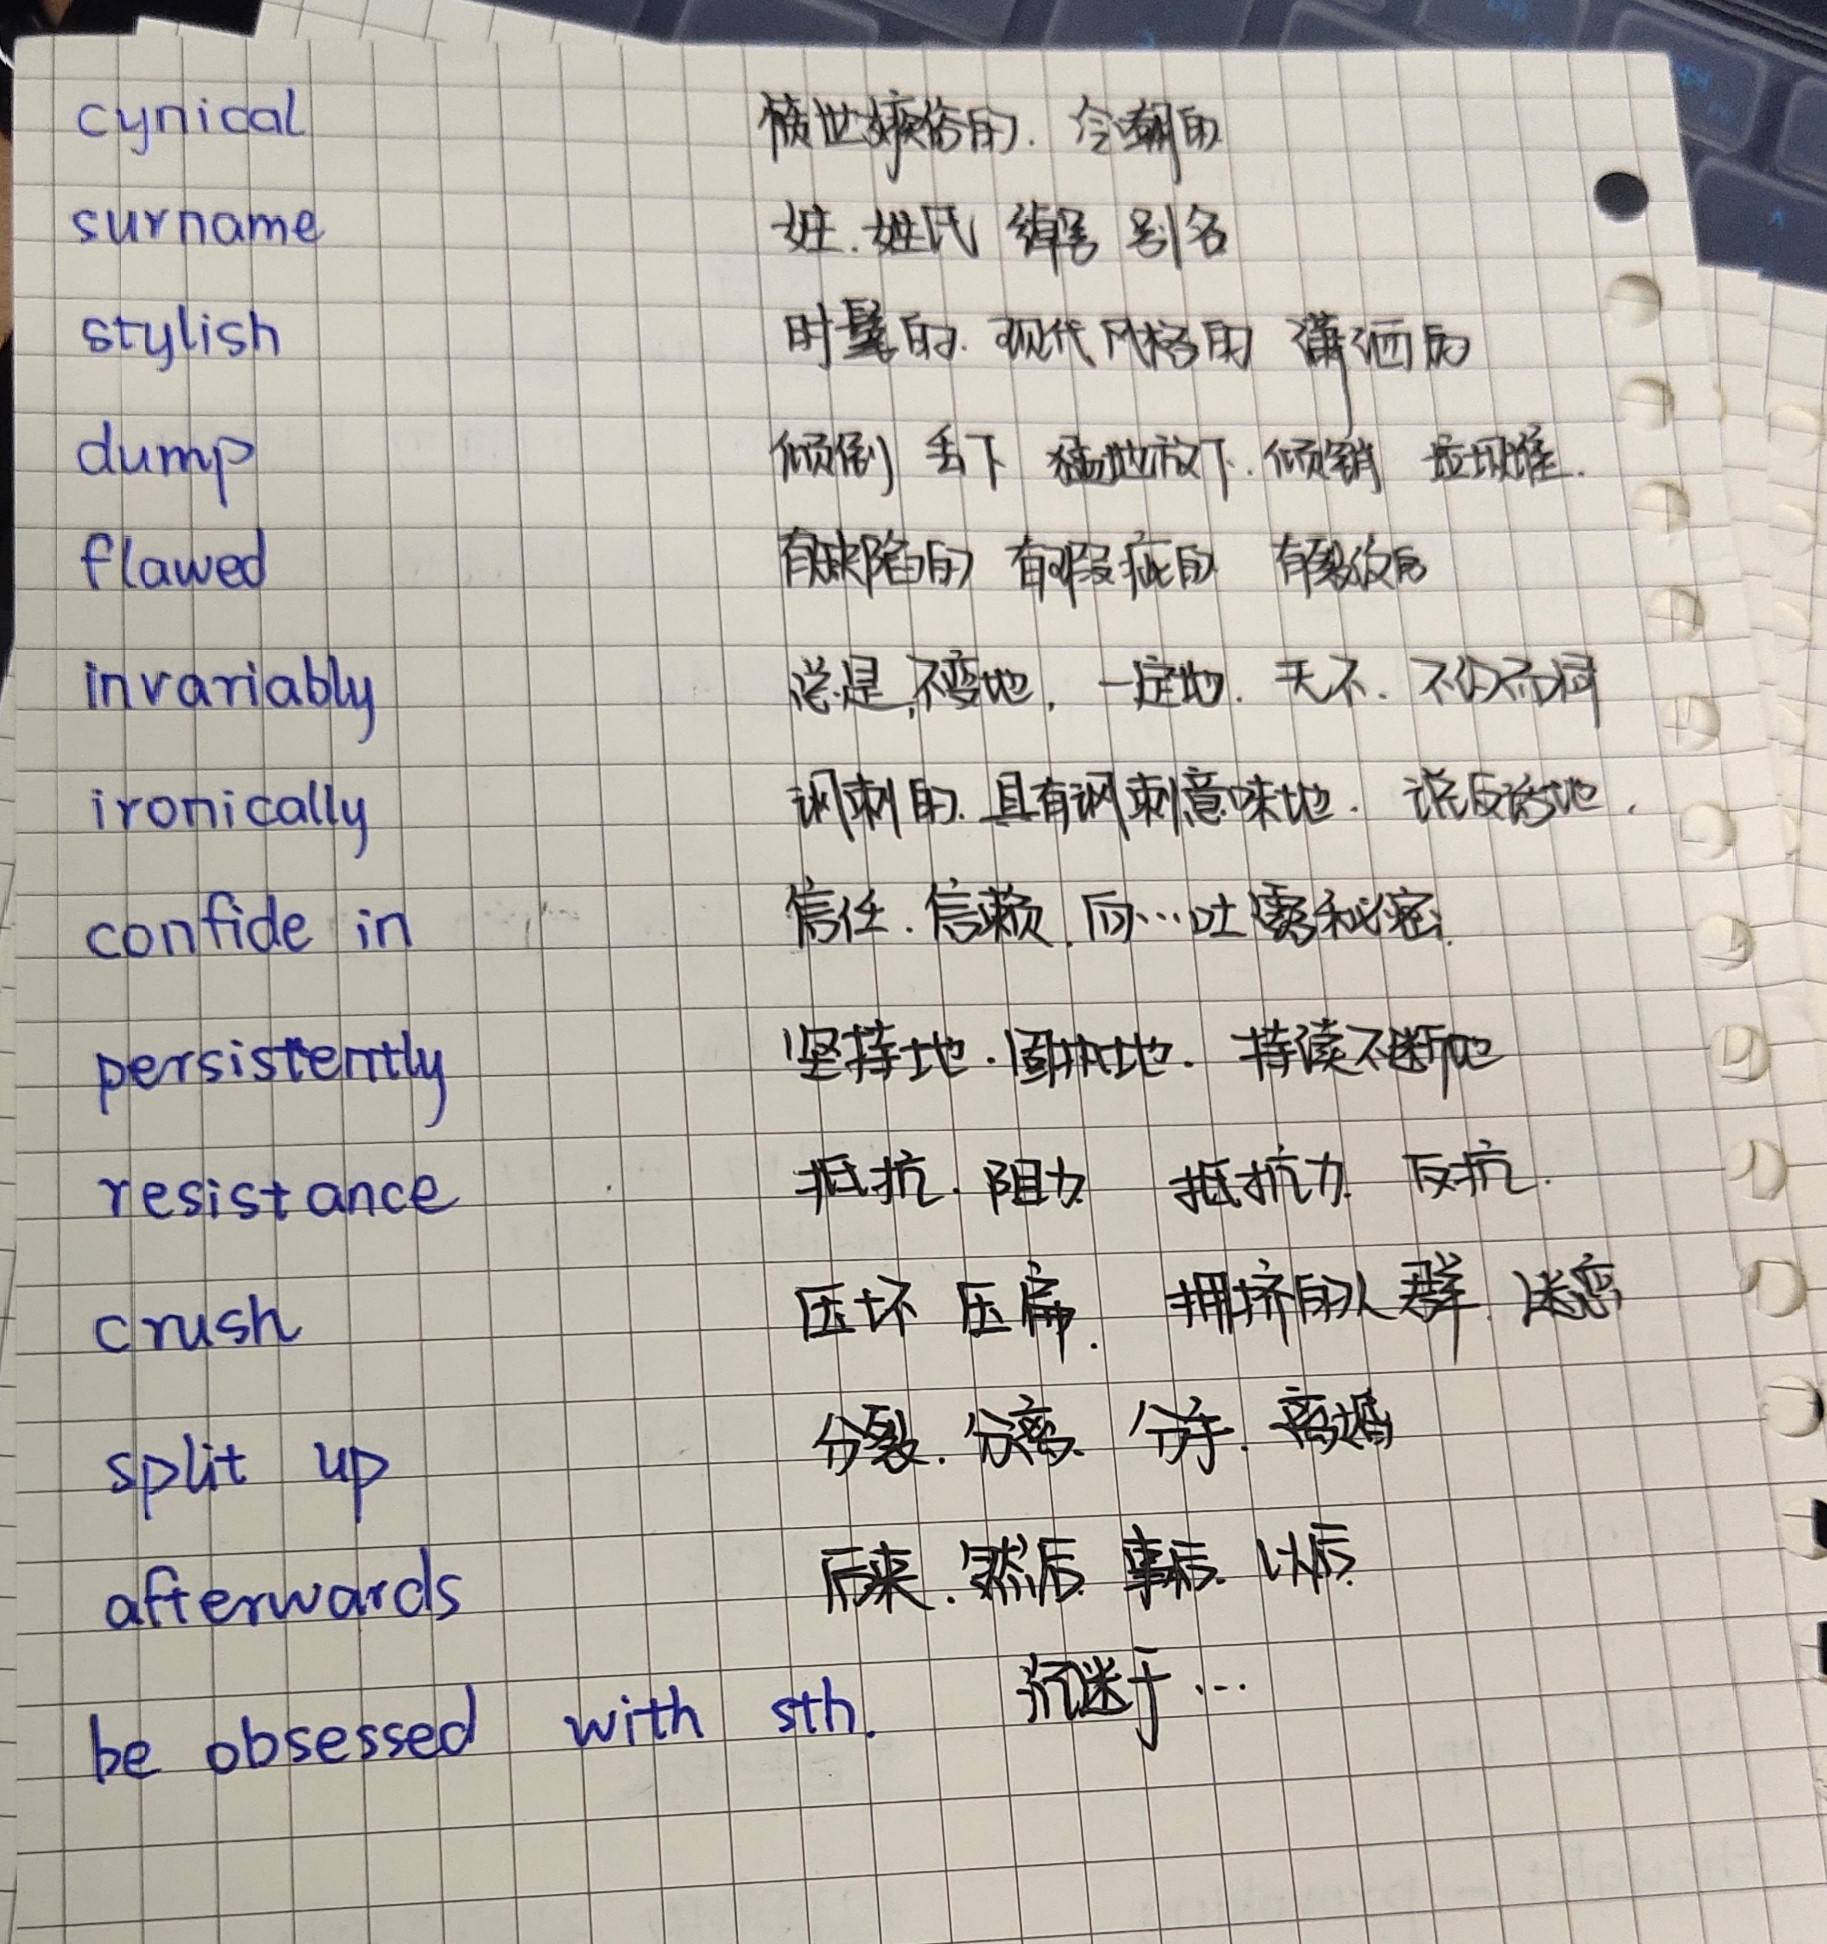 cynical 愤世嫉俗的. 冷嘲的
surname 姓. 姓氏 绰号 别名
stylish 时髦的. 现代风格的 潇洒的
dump 倾倒 丢下 猛地放下. 倾销 垃圾堆.
flawed 有缺陷的 有瑕疵的 有裂纹的
invariably 总是, 不变地, 一定地. 无不. 不约而同
ironically 讽刺的. 具有讽刺意味地. 说反话地.
confide in 信任. 信赖. 向…吐露秘密.
persistently 坚持地. 固执地. 持续不断地
resistance 抵抗. 阻力 抵抗力. 反抗.
crush 压坏 压扁. 拥挤的人群. 迷恋
split up 分裂. 分离. 分手. 离婚
afterwards 后来. 然后. 事后. 以后.
be obsessed with sth. 沉迷于…